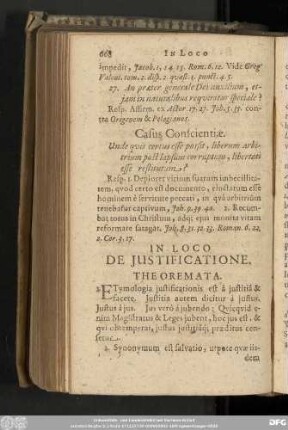 668 IN LOCO
impedit, Jacob. 1, 14. 15. Rom. 6. 12. Vide Greg
Valent. tom. 2. disp. 2. quæst. 1. punct. 4. 5.
27. An præter generale Dei auxilium, et-
jam in naturalibus requiratur speciale?
Resp. Affirm. ex Actor. 17. 27. Joh. 5. 35. con-
tra Origenem & Pelagianos.
Casus Conscientiæ.
Unde quis certus esse possit, liberum arbi-
trium post lapsum corruptum, libertati
esse restitutum?
Resp. 1. Deploret vicium suarum imbecillita-
tem, quod certo est documento, ejusmodi esse
hominem è servitute peccati, in qua arbitrium
tenebatur captivum, Joh. 9. 39. 40. 2. Recum-
bat totus in Christum, adqj ejus monita vitam
reformare satagat, Joh. 8. 31. 32. 33. Roman. 6. 22.
2. Cor. 3. 17.
IN LOCO
DE JUSTIFICATIONE.
THEOREMATA.
1. ETymologia justificationis est à justitiâ &
facere. Justitia autem dicitur à justo.
Justus à jus. Jus verò à jubendo; Quicquid e-
nim Magistratus & Leges jubent, hoc jus est, &
qui obtemperat, justus justitiâqj præditus cen-
setur.
2. Synonymum est salvatio, utpote quæ iis-
dem